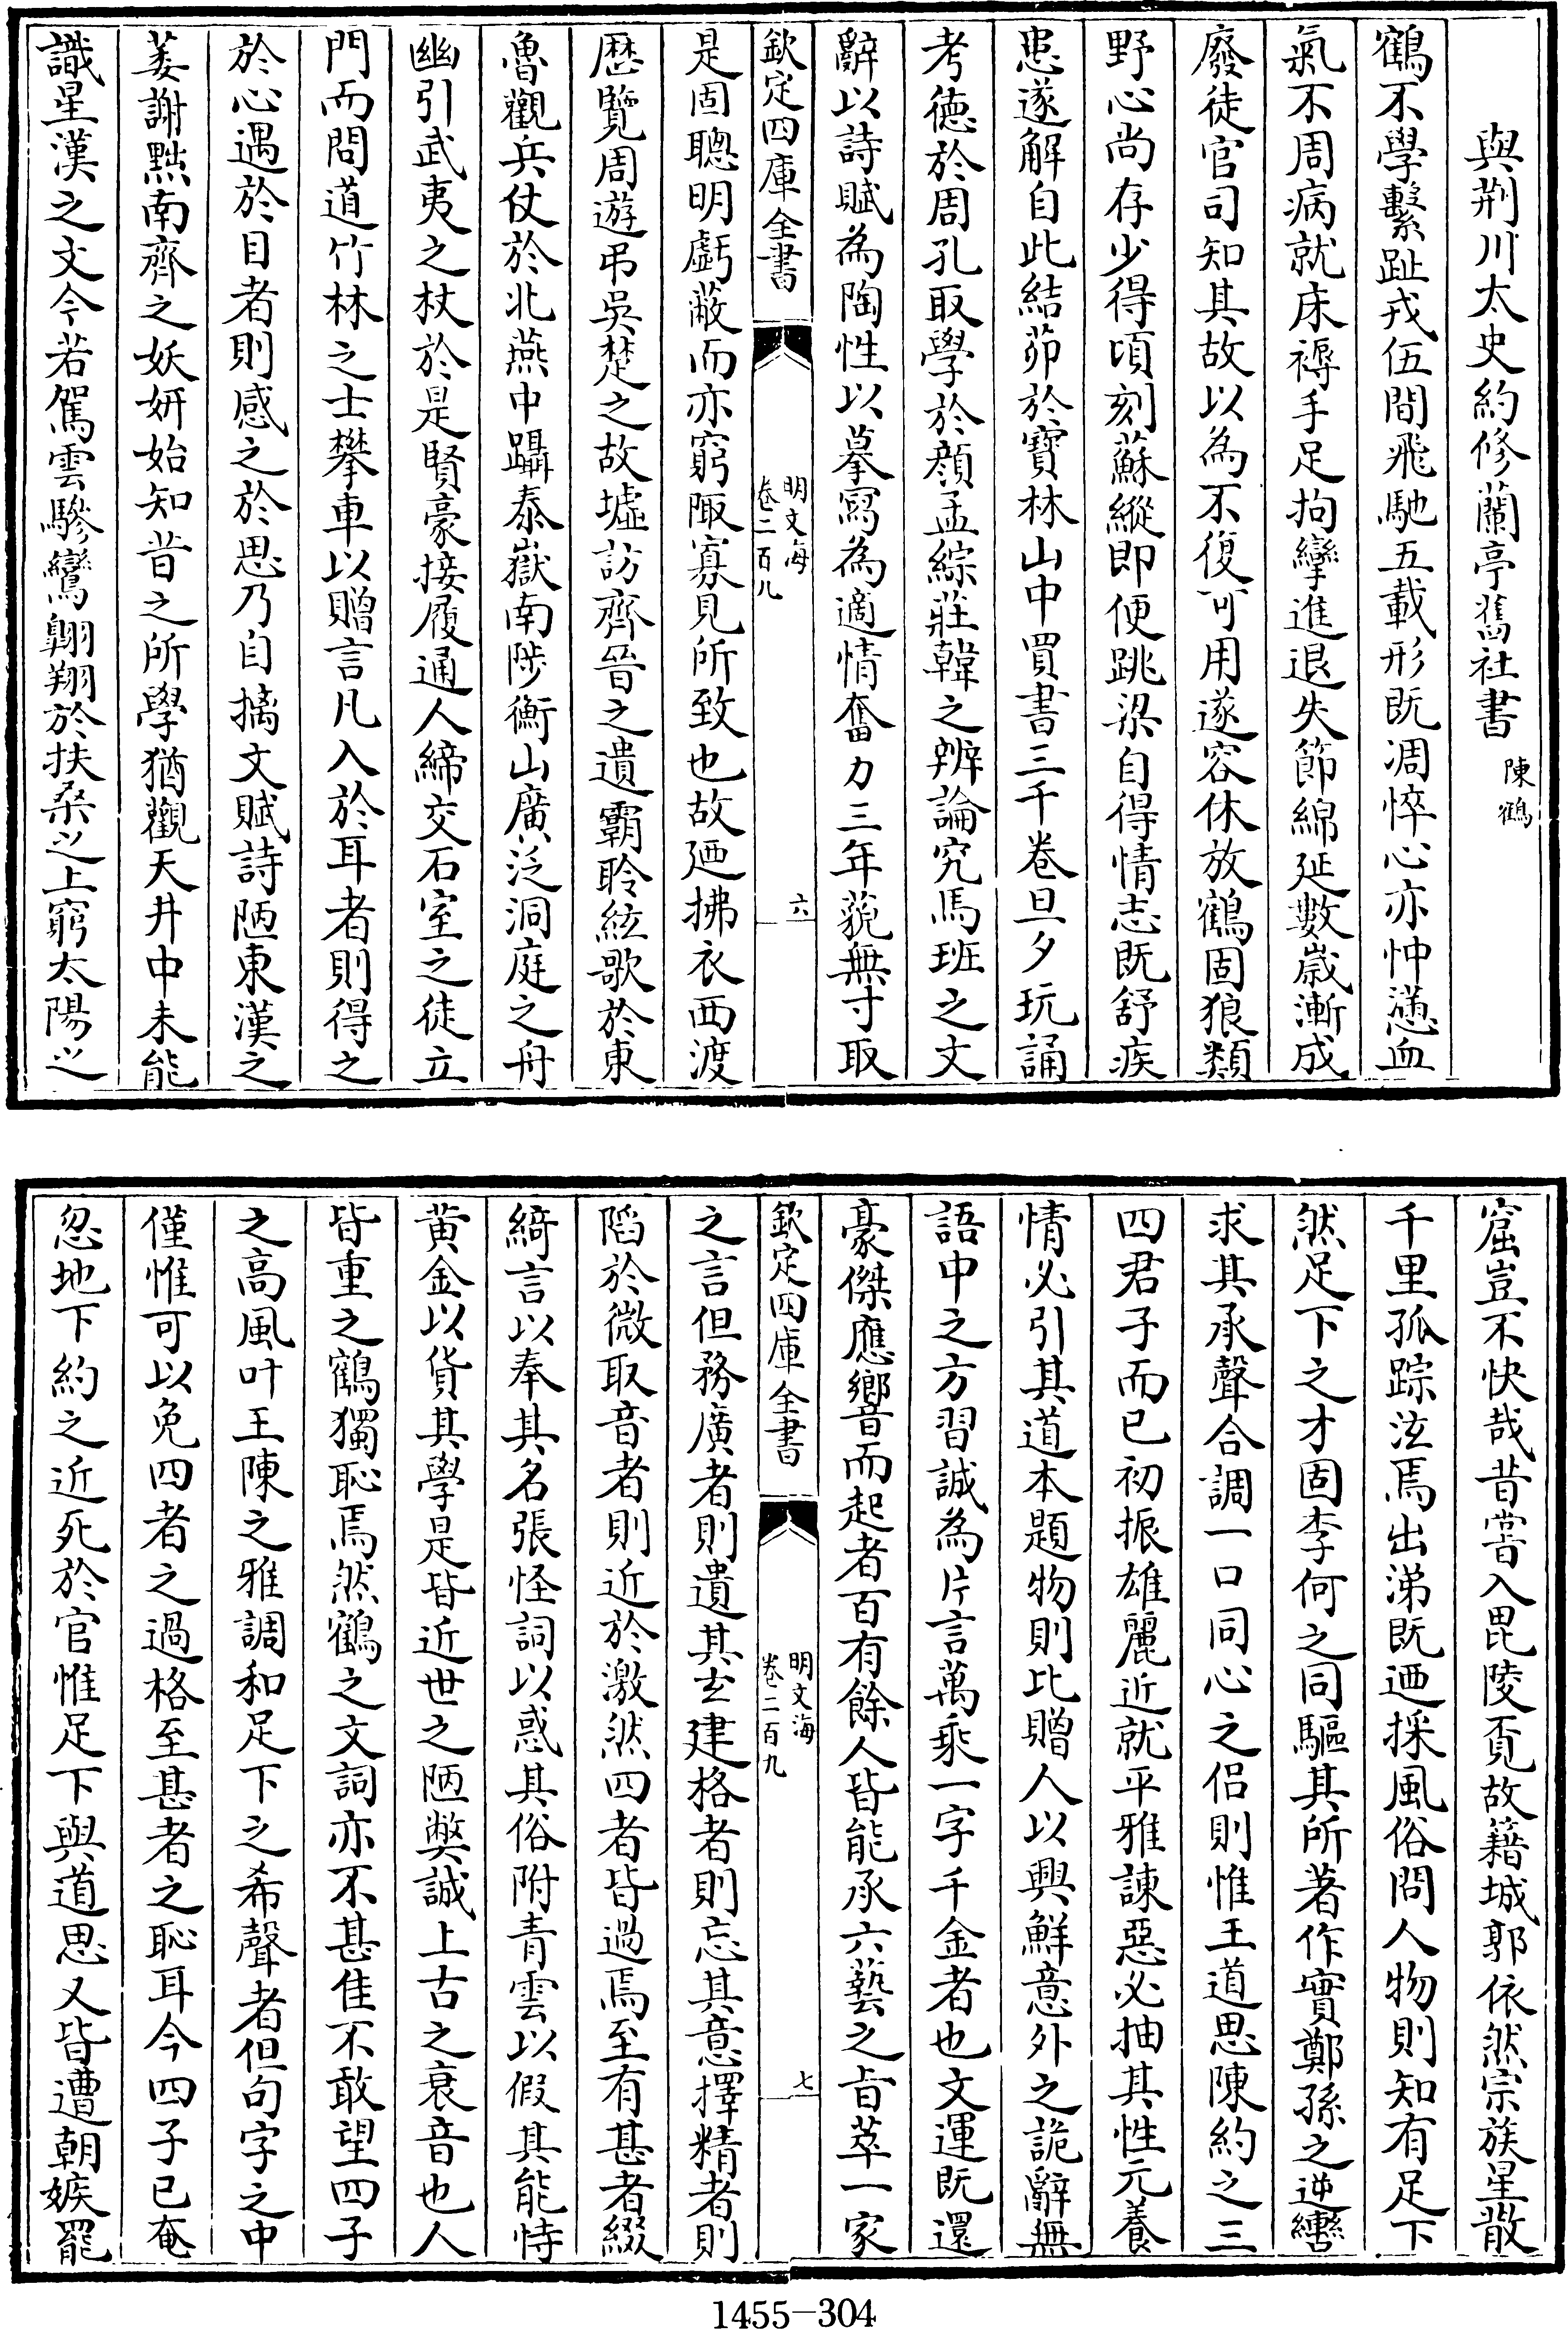 與荆川太史約修蘭亭舊社書 陳鶴
鶴不學繫趾戎伍間飛馳五載形既凋悴心亦忡懣血
氣不周病就床褥手足拘攣進退失節綿延數歲漸成
廢徒官司知其故以為不復可用遂容休放鶴固狼類
野心尚存少得頃刻蘇縱即便跳梁自得情志既舒疾
患遂解自此結茆於寶林山中買書三千卷旦夕玩誦
考德於周孔取學於顔孟綜莊韓之辨論究馬班之文
辭以詩賦為陶性以摹寫為適情奮力三年藐無寸取
欽定四庫全書 明文海 卷二百九 六
是固聰明虧蔽而亦窮陬寡見所致也故廼拂衣西渡
歴覽周遊弔吳楚之故墟訪齊晉之遺霸聆絃歌於東
魯觀兵仗於北燕中躡泰嶽南陟衡山廣泛洞庭之舟
幽引武夷之杖於是賢豪接履通人締交石室之徒立
門而問道竹林之士攀車以贈言凡入於耳者則得之
於心遇於目者則感之於思乃自摛文賦詩陋東漢之
萎謝黜南齊之妖妍始知昔之所學猶觀天井中未能
識星漢之文今若駕雲驂鸞翺翔於扶桑之上窮太陽之
窟豈不快哉昔嘗入毘陵覔故籍城郭依然宗族星散
千里孤踪泫焉出涕既迺採風俗問人物則知有足下
然足下之才固李何之同驅其所著作實鄭孫之逆轡
求其承聲合調一口同心之侣則惟王道思陳約之三
四君子而已初振雄麗近就平雅諫惡必抽其性元養
情必引其道本題物則比贈人以興鮮意外之詭辭無
語中之方習誠為片言萬乘一字千金者也文運既還
豪傑應嚮音而起者百有餘人皆能承六藝之旨萃一家
欽定四庫全書 明文海 卷二百九 七
之言但務廣者則遺其玄建格者則忘其意擇精者則
陷於微取音者則近於激然四者皆過焉至有甚者綴
綺言以奉其名張怪詞以惑其俗附青雲以假其能恃
黄金以貨其學是皆近世之陋獘誠上古之衰音也人
皆重之鶴獨恥焉然鶴之文詞亦不甚佳不敢望四子
之高風叶王陳之雅調和足下之希聲者但句字之中
僅惟可以免四者之過格至甚者之恥耳今四子已奄
忽地下約之近死於官惟足下與道思又皆遭朝嫉罷
1455—304